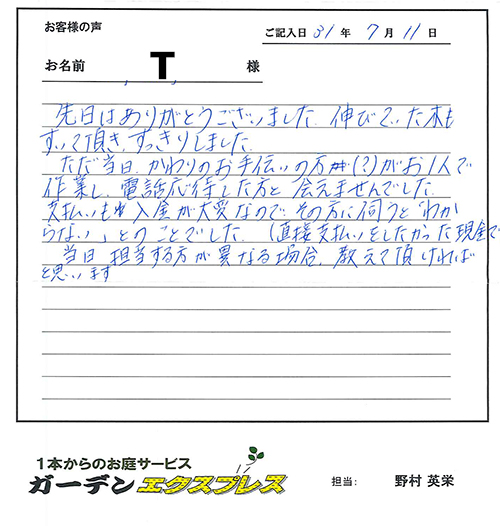 お客様の声
ご記入日 31 年 7 月 11 日
お名前 T 様
先日はありがとうございました。伸びていた木も
すいて頂き、すっきりしました。
ただ当日、かわりのお手伝いの方が(?)がお1人で
作業し、電話応待した方と会えませんでした。
支払いも入金が大変なので、その方に伺うと「わか
らない」とのことでした。(直接支払いをしたかった現金で
当日、担当する方が異なる場合、教えて頂ければ
と思います
1本からのお庭サービス
ガーデンエクスプレス
担当: 野村 英栄